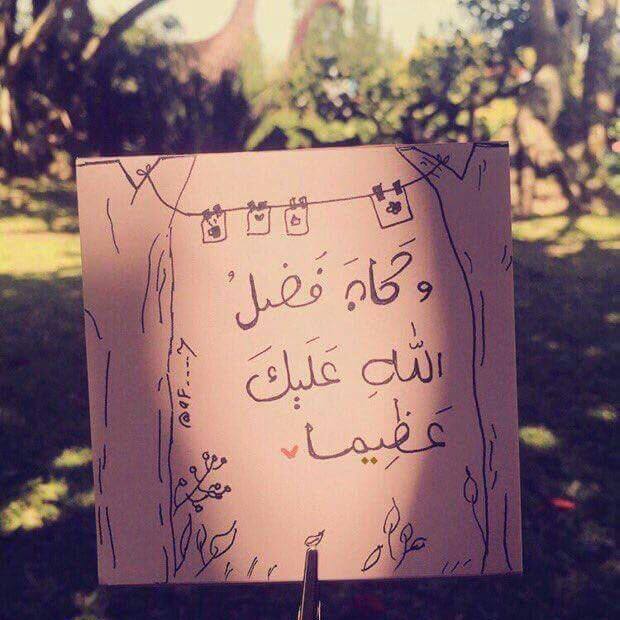 وَكَانَ فَضلُ
اللَّهِ عَلَيكَ
عَظِيما